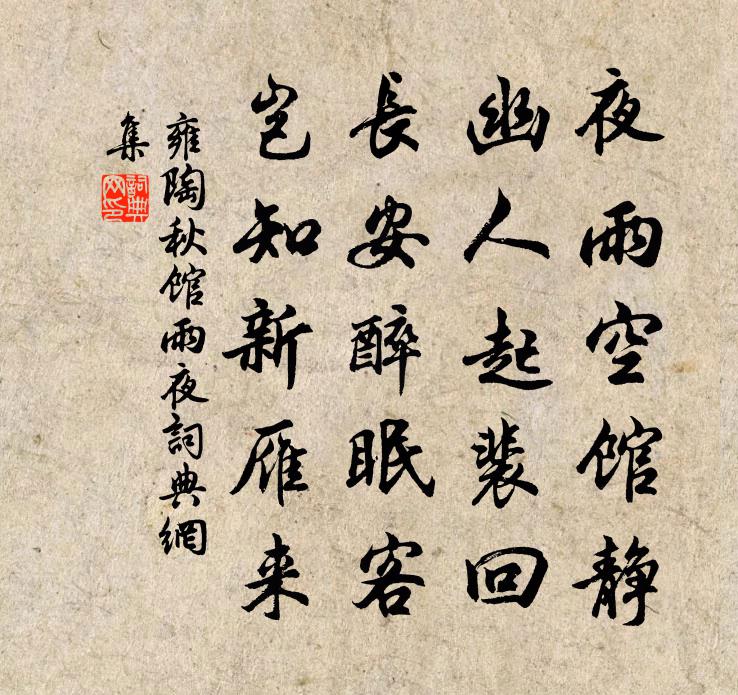 夜雨空馆静
幽人起裴回
長安醉眠客
岂知新雁来
雍陶秋馆雨夜詞典網
集
詞典
网印